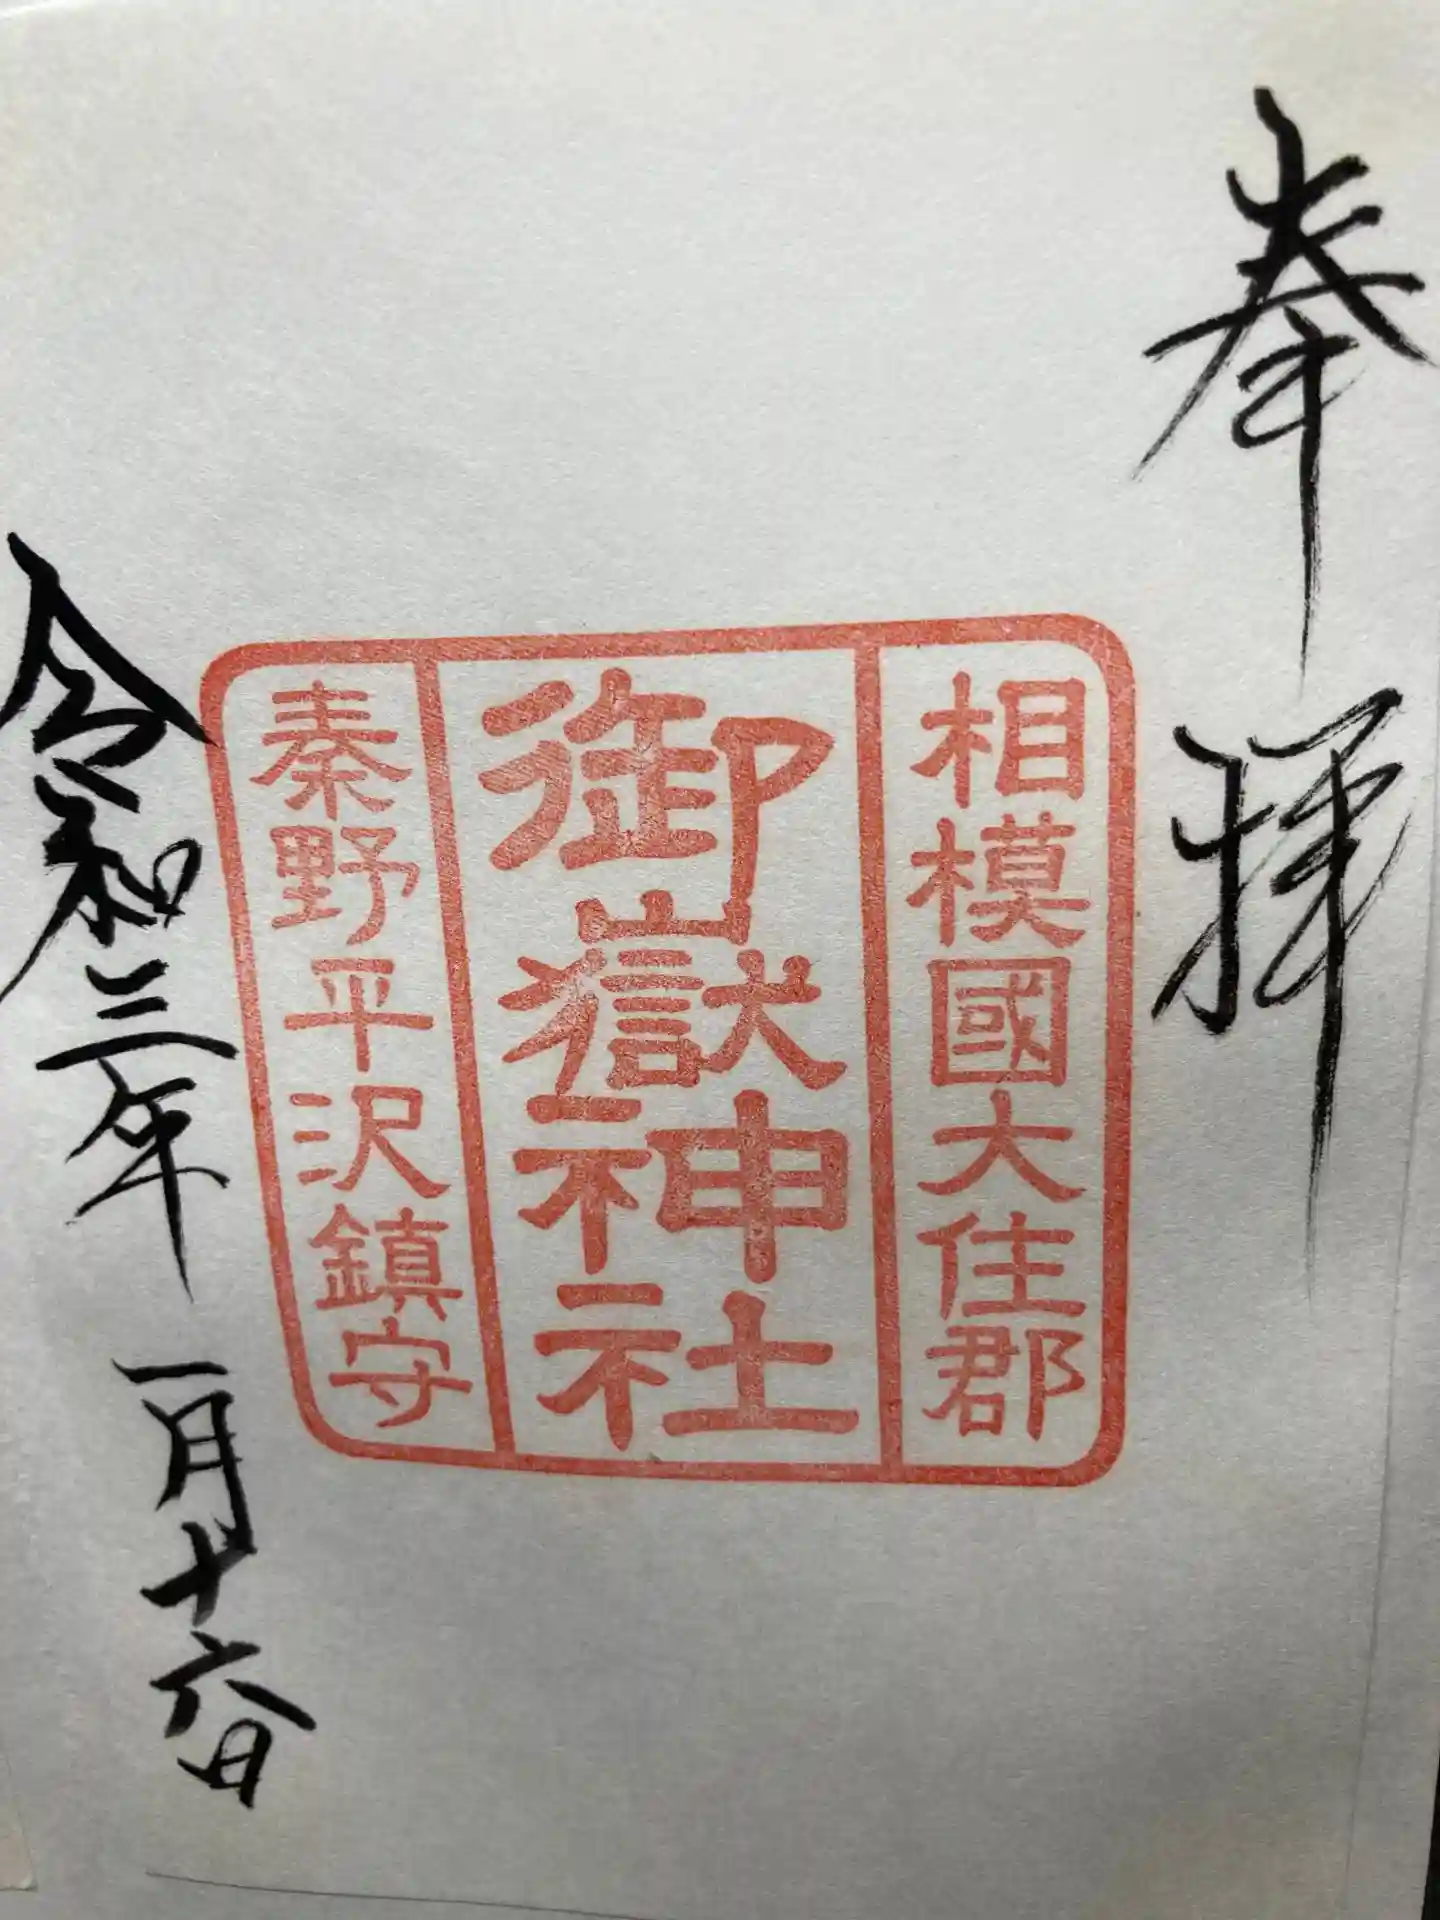 奉拝
相模國大住郡
御嶽神社
秦野平沢鎮守
令和三年一月十六日